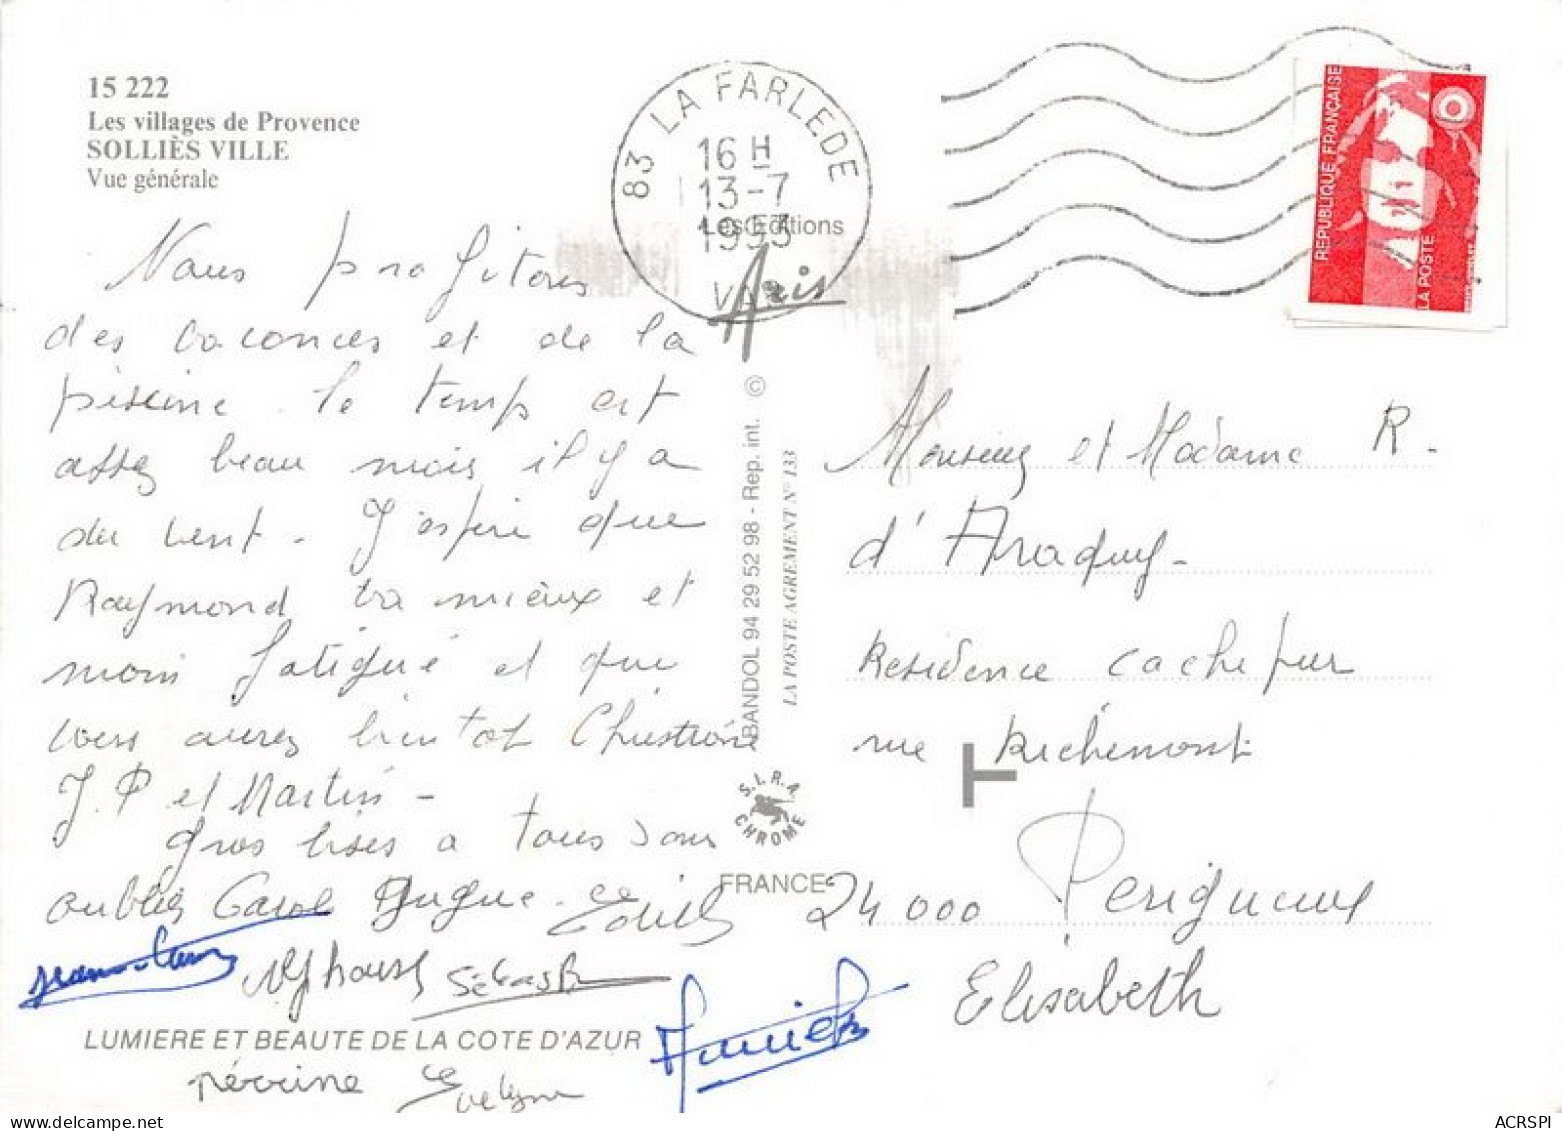 15 222
Les villages de Provence
SOLLIÈS VILLE
Vue générale
83 LA FARLEDE
16 H
13-7
1993
VAR
Les Editions
Aris
REPUBLIQUE FRANÇAISE
LA POSTE
Nous profitons
des vacances et de la
piscine. le temps est
assez beau mais il y a
du vent. J'espère que
Raymond va mieux et
moin fatigué et que
vous aurez bientot Christiane
J.P et Martin -
Gros bises a tous sans
oublier Carol Hugue Edith
Alphonse Sébastien
LUMIERE ET BEAUTE DE LA COTE D'AZUR
Perrine Evelyne
BANDOL 94 29 52 98 - Rep. int. ©
LA POSTE AGREMENT N° 133
S.I.R.A
CHROME
FRANCE
Monsieur et Madame R.
d'Araquy -
Residence cachepur
rue Richemont
24 000 Perigueux
Elisabeth
ACRSPI